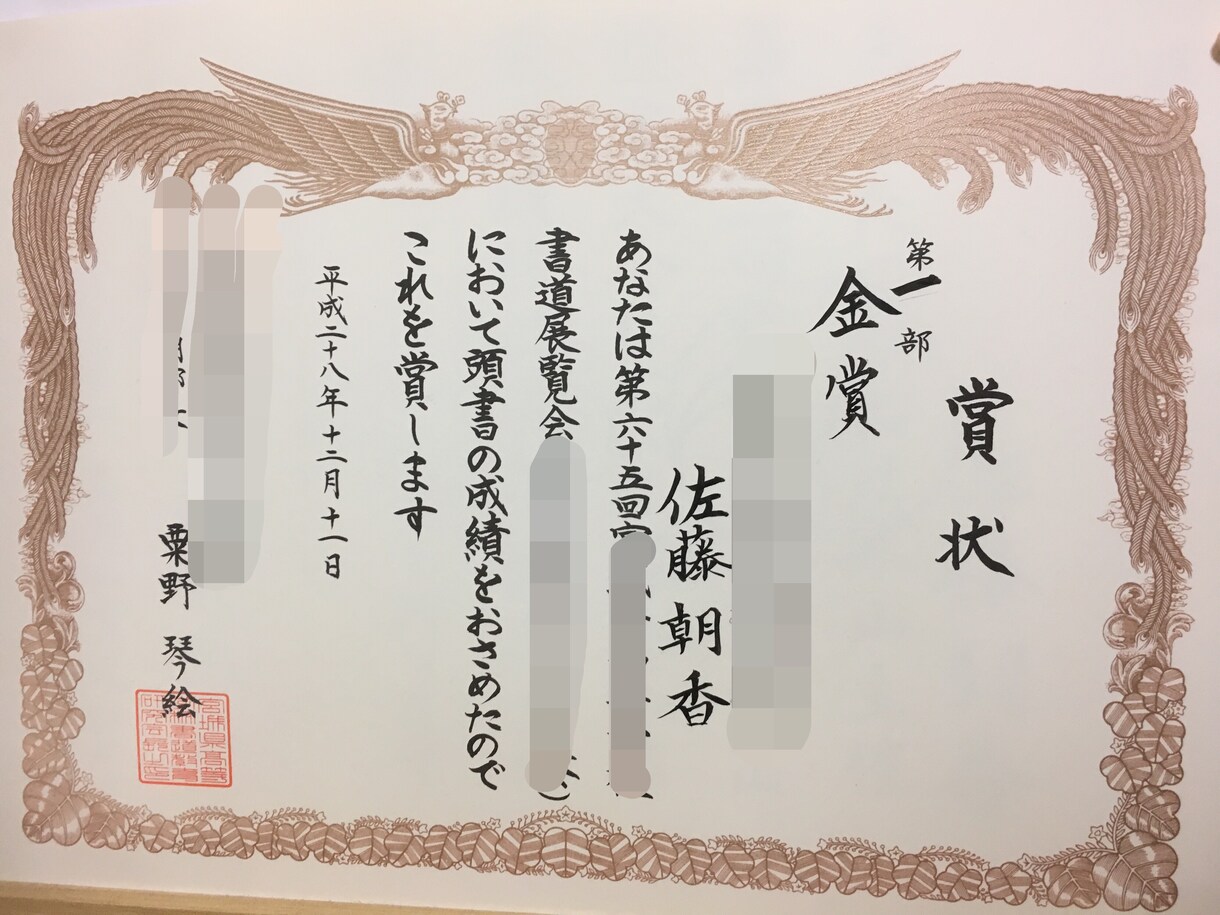 賞状
第一部
金賞
佐藤朝香
あなたは第六十五回宮
書道展覧会
において頭書の成績をおさめたので
これを賞します
平成二十八年十二月十一日
粟野琴絵